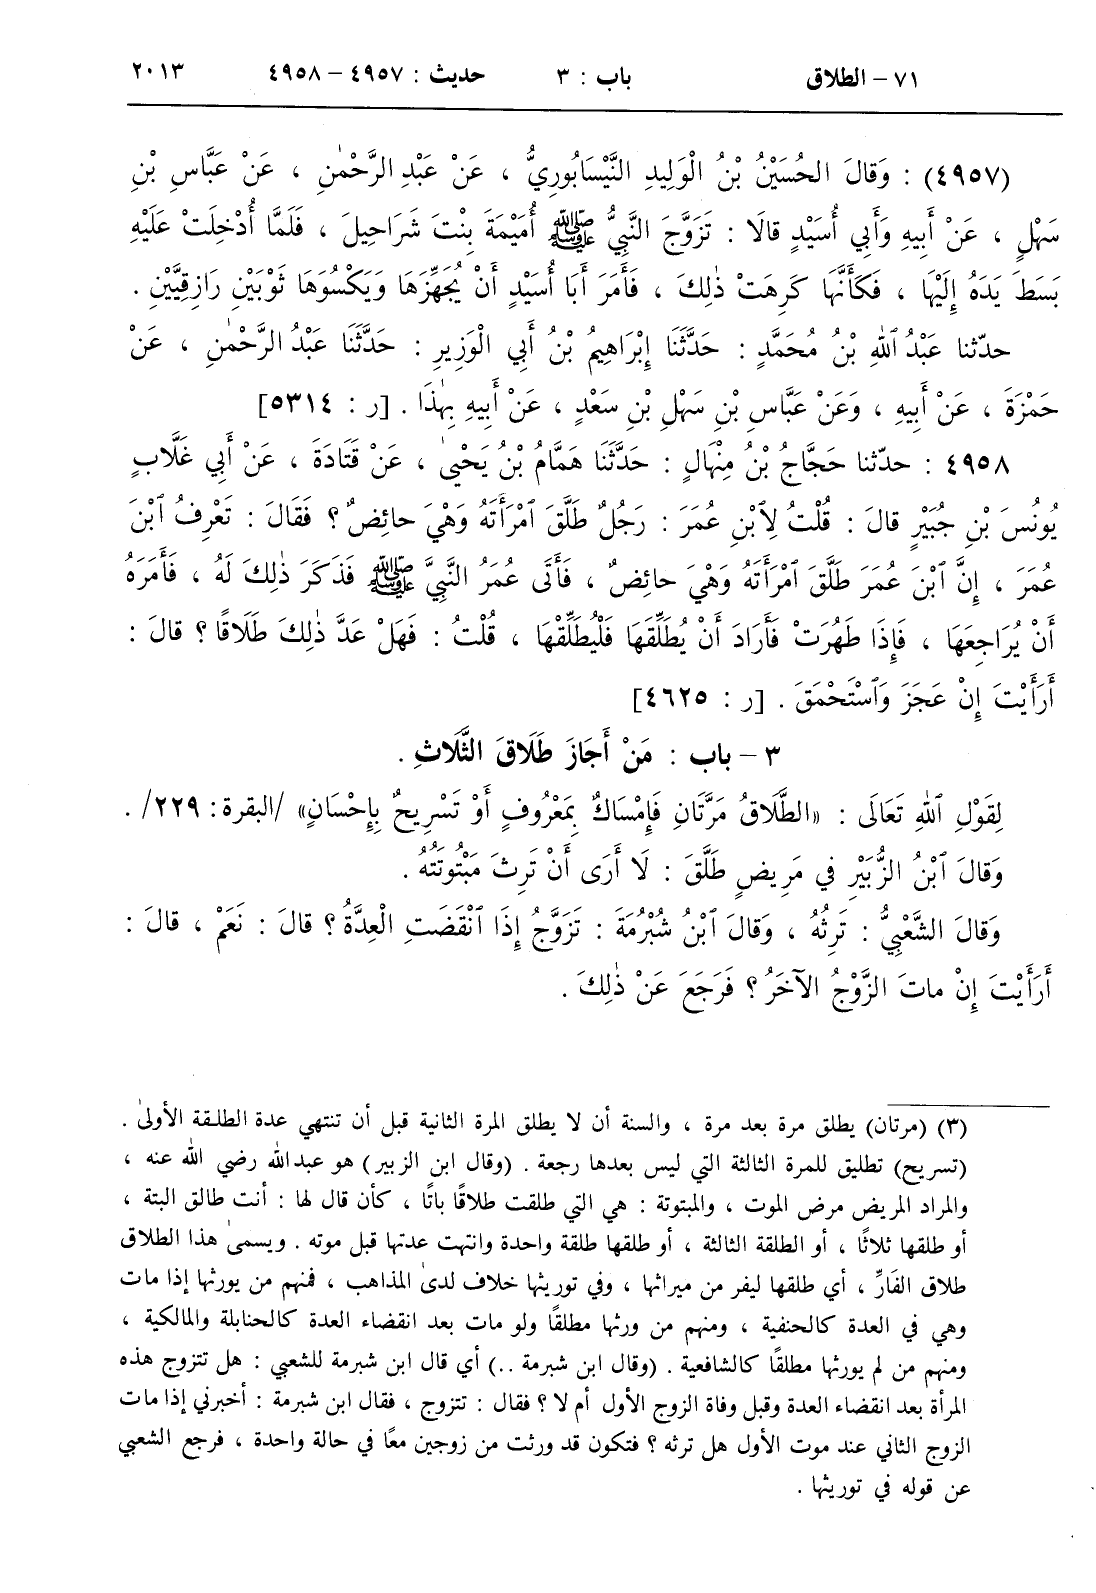 ٧١ – الطلاق باب : ٣ حديث : ٤٩٥٧ – ٤٩٥٨ ٢٠١٣
(٤٩٥٧) : وَقالَ الحُسَيْنُ بْنُ الْوَلِيدِ النَّيْسَابُورِيُّ ، عَنْ عَبْدِ الرَّحْمٰنِ ، عَنْ عَبَّاسِ بْنِ
سَهْلٍ ، عَنْ أَبِيهِ وَأَبِي أُسَيْدٍ قالَا : تَزَوَّجَ النَّبِيُّ ﷺ أُمَيْمَةَ بِنْتَ شَرَاحِيلَ ، فَلَمَّا أُدْخِلَتْ عَلَيْهِ
بَسَطَ يَدَهُ إِلَيْهَا ، فَكَأَنَّهَا كَرِهَتْ ذٰلِكَ ، فَأَمَرَ أَبَا أُسَيْدٍ أَنْ يُجَهِّزَهَا وَيَكْسُوَهَا ثَوْبَيْنِ رَازِقِيَّيْنِ .
حدّثنا عَبْدُ ٱللهِ بْنُ مُحَمَّدٍ : حَدَّثَنَا إِبْرَاهِيمُ بْنُ أَبِي الْوَزِيرِ : حَدَّثَنَا عَبْدُ الرَّحْمٰنِ ، عَنْ
حَمْزَةَ ، عَنْ أَبِيهِ ، وَعَنْ عَبَّاسِ بْنِ سَهْلِ بْنِ سَعْدٍ ، عَنْ أَبِيهِ بِهٰذَا . [ر : ٥٣١٤]
٤٩٥٨ : حدّثنا حَجَّاجُ بْنُ مِنْهَالٍ : حَدَّثَنَا هَمَّامُ بْنُ يَحْيىٰ ، عَنْ قَتَادَةَ ، عَنْ أَبِي غَلَّابٍ
يُونُسَ بْنِ جُبَيْرٍ قالَ : قُلْتُ لِٱبْنِ عُمَرَ : رَجُلٌ طَلَّقَ ٱمْرَأَتَهُ وَهْيَ حائِضٌ ؟ فَقَالَ : تَعْرِفُ ٱبْنَ
عُمَرَ ، إِنَّ ٱبْنَ عُمَرَ طَلَّقَ ٱمْرَأَتَهُ وَهْيَ حائِضٌ ، فَأَتَى عُمَرُ النَّبِيَّ ﷺ فَذَكَرَ ذٰلِكَ لَهُ ، فَأَمَرَهُ
أَنْ يُرَاجِعَهَا ، فَإِذَا طَهُرَتْ فَأَرَادَ أَنْ يُطَلِّقَهَا فَلْيُطَلِّقْهَا ، قُلْتُ : فَهَلْ عَدَّ ذٰلِكَ طَلَاقًا ؟ قالَ :
أَرَأَيْتَ إِنْ عَجَزَ وَٱسْتَحْمَقَ . [ر : ٤٦٢٥]
٣ – باب : مَنْ أَجَازَ طَلَاقَ الثَّلَاثِ .
لِقَوْلِ ٱللهِ تَعَالَى : «الطَّلَاقُ مَرَّتَانِ فَإِمْسَاكٌ بِمَعْرُوفٍ أَوْ تَسْرِيحٌ بِإِحْسَانٍ» /البقرة: ٢٢٩/ .
وَقالَ ٱبْنُ الزُّبَيْرِ في مَرِيضٍ طَلَّقَ : لَا أَرَى أَنْ تَرِثَ مَبْتُوتَتُهُ .
وَقالَ الشَّعْبِيُّ : تَرِثُهُ ، وَقالَ ٱبْنُ شُبْرُمَةَ : تَزَوَّجُ إِذَا ٱنْقَضَتِ الْعِدَّةُ ؟ قالَ : نَعَمْ ، قالَ :
أَرَأَيْتَ إِنْ ماتَ الزَّوْجُ الآخَرُ ؟ فَرَجَعَ عَنْ ذٰلِكَ .
(٣) (مرتان) يطلق مرة بعد مرة ، والسنة أن لا يطلق المرة الثانية قبل أن تنتهي عدة الطلقة الأولىٰ .
(تسريح) تطليق للمرة الثالثة التي ليس بعدها رجعة . (وقال ابن الزبير) هو عبدالله رضي الله عنه ،
والمراد المريض مرض الموت ، والمبتوتة : هي التي طلقت طلاقًا باتًا ، كأن قال لها : أنت طالق البتة ،
أو طلقها ثلاثًا ، أو الطلقة الثالثة ، أو طلقها طلقة واحدة وانتهت عدتها قبل موته . ويسمىٰ هذا الطلاق
طلاق الفَارِّ ، أي طلقها ليفر من ميراثها ، وفي توريثها خلاف لدىٰ المذاهب ، فمنهم من يورثها إذا مات
وهي في العدة كالحنفية ، ومنهم من ورثها مطلقًا ولو مات بعد انقضاء العدة كالحنابلة والمالكية ،
ومنهم من لم يورثها مطلقًا كالشافعية . (وقال ابن شبرمة ..) أي قال ابن شبرمة للشعبي : هل تتزوج هذه
المرأة بعد انقضاء العدة وقبل وفاة الزوج الأول أم لا ؟ فقال : تتزوج ، فقال ابن شبرمة : أخبرني إذا مات
الزوج الثاني عند موت الأول هل ترثه ؟ فتكون قد ورثت من زوجين معًا في حالة واحدة ، فرجع الشعبي
عن قوله في توريثها .